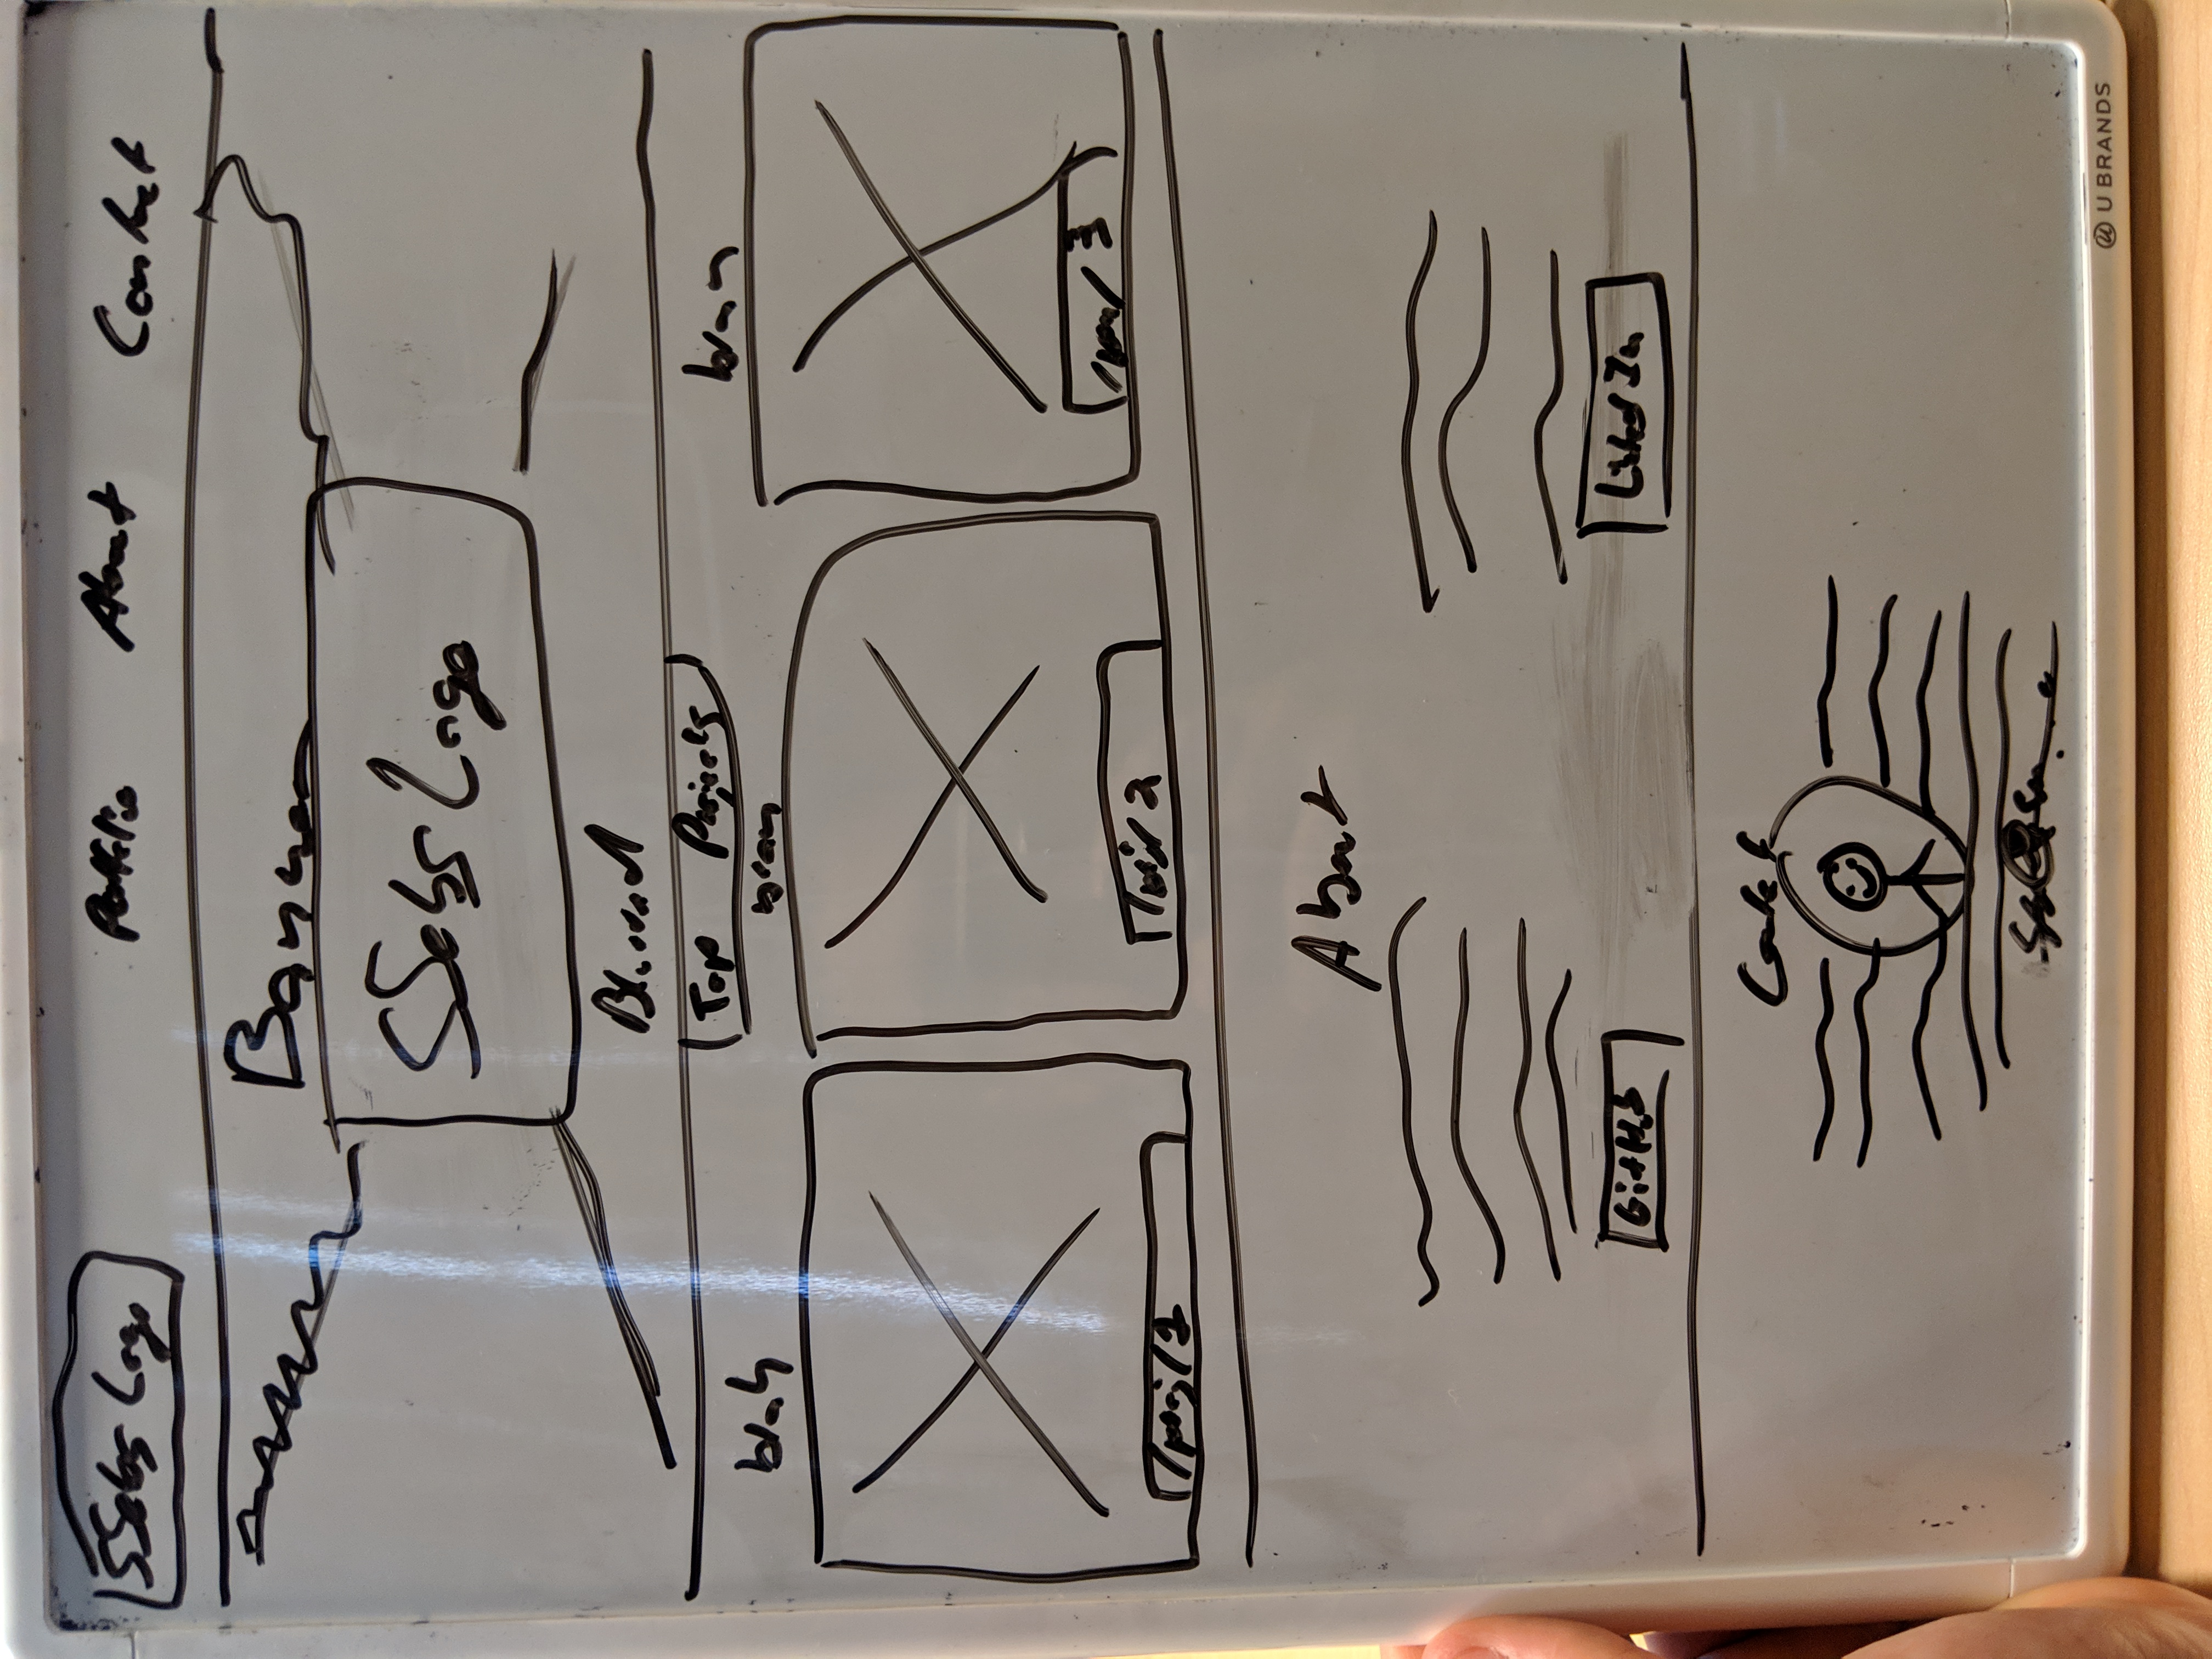 SSebs Logo Portfolio About Contact
Banner
SSebs Logo
Blurred
Top Projects
blah
/proj/1
/proj/2
/proj/3
About
GitHub
LinkedIn
Contact
U BRANDS